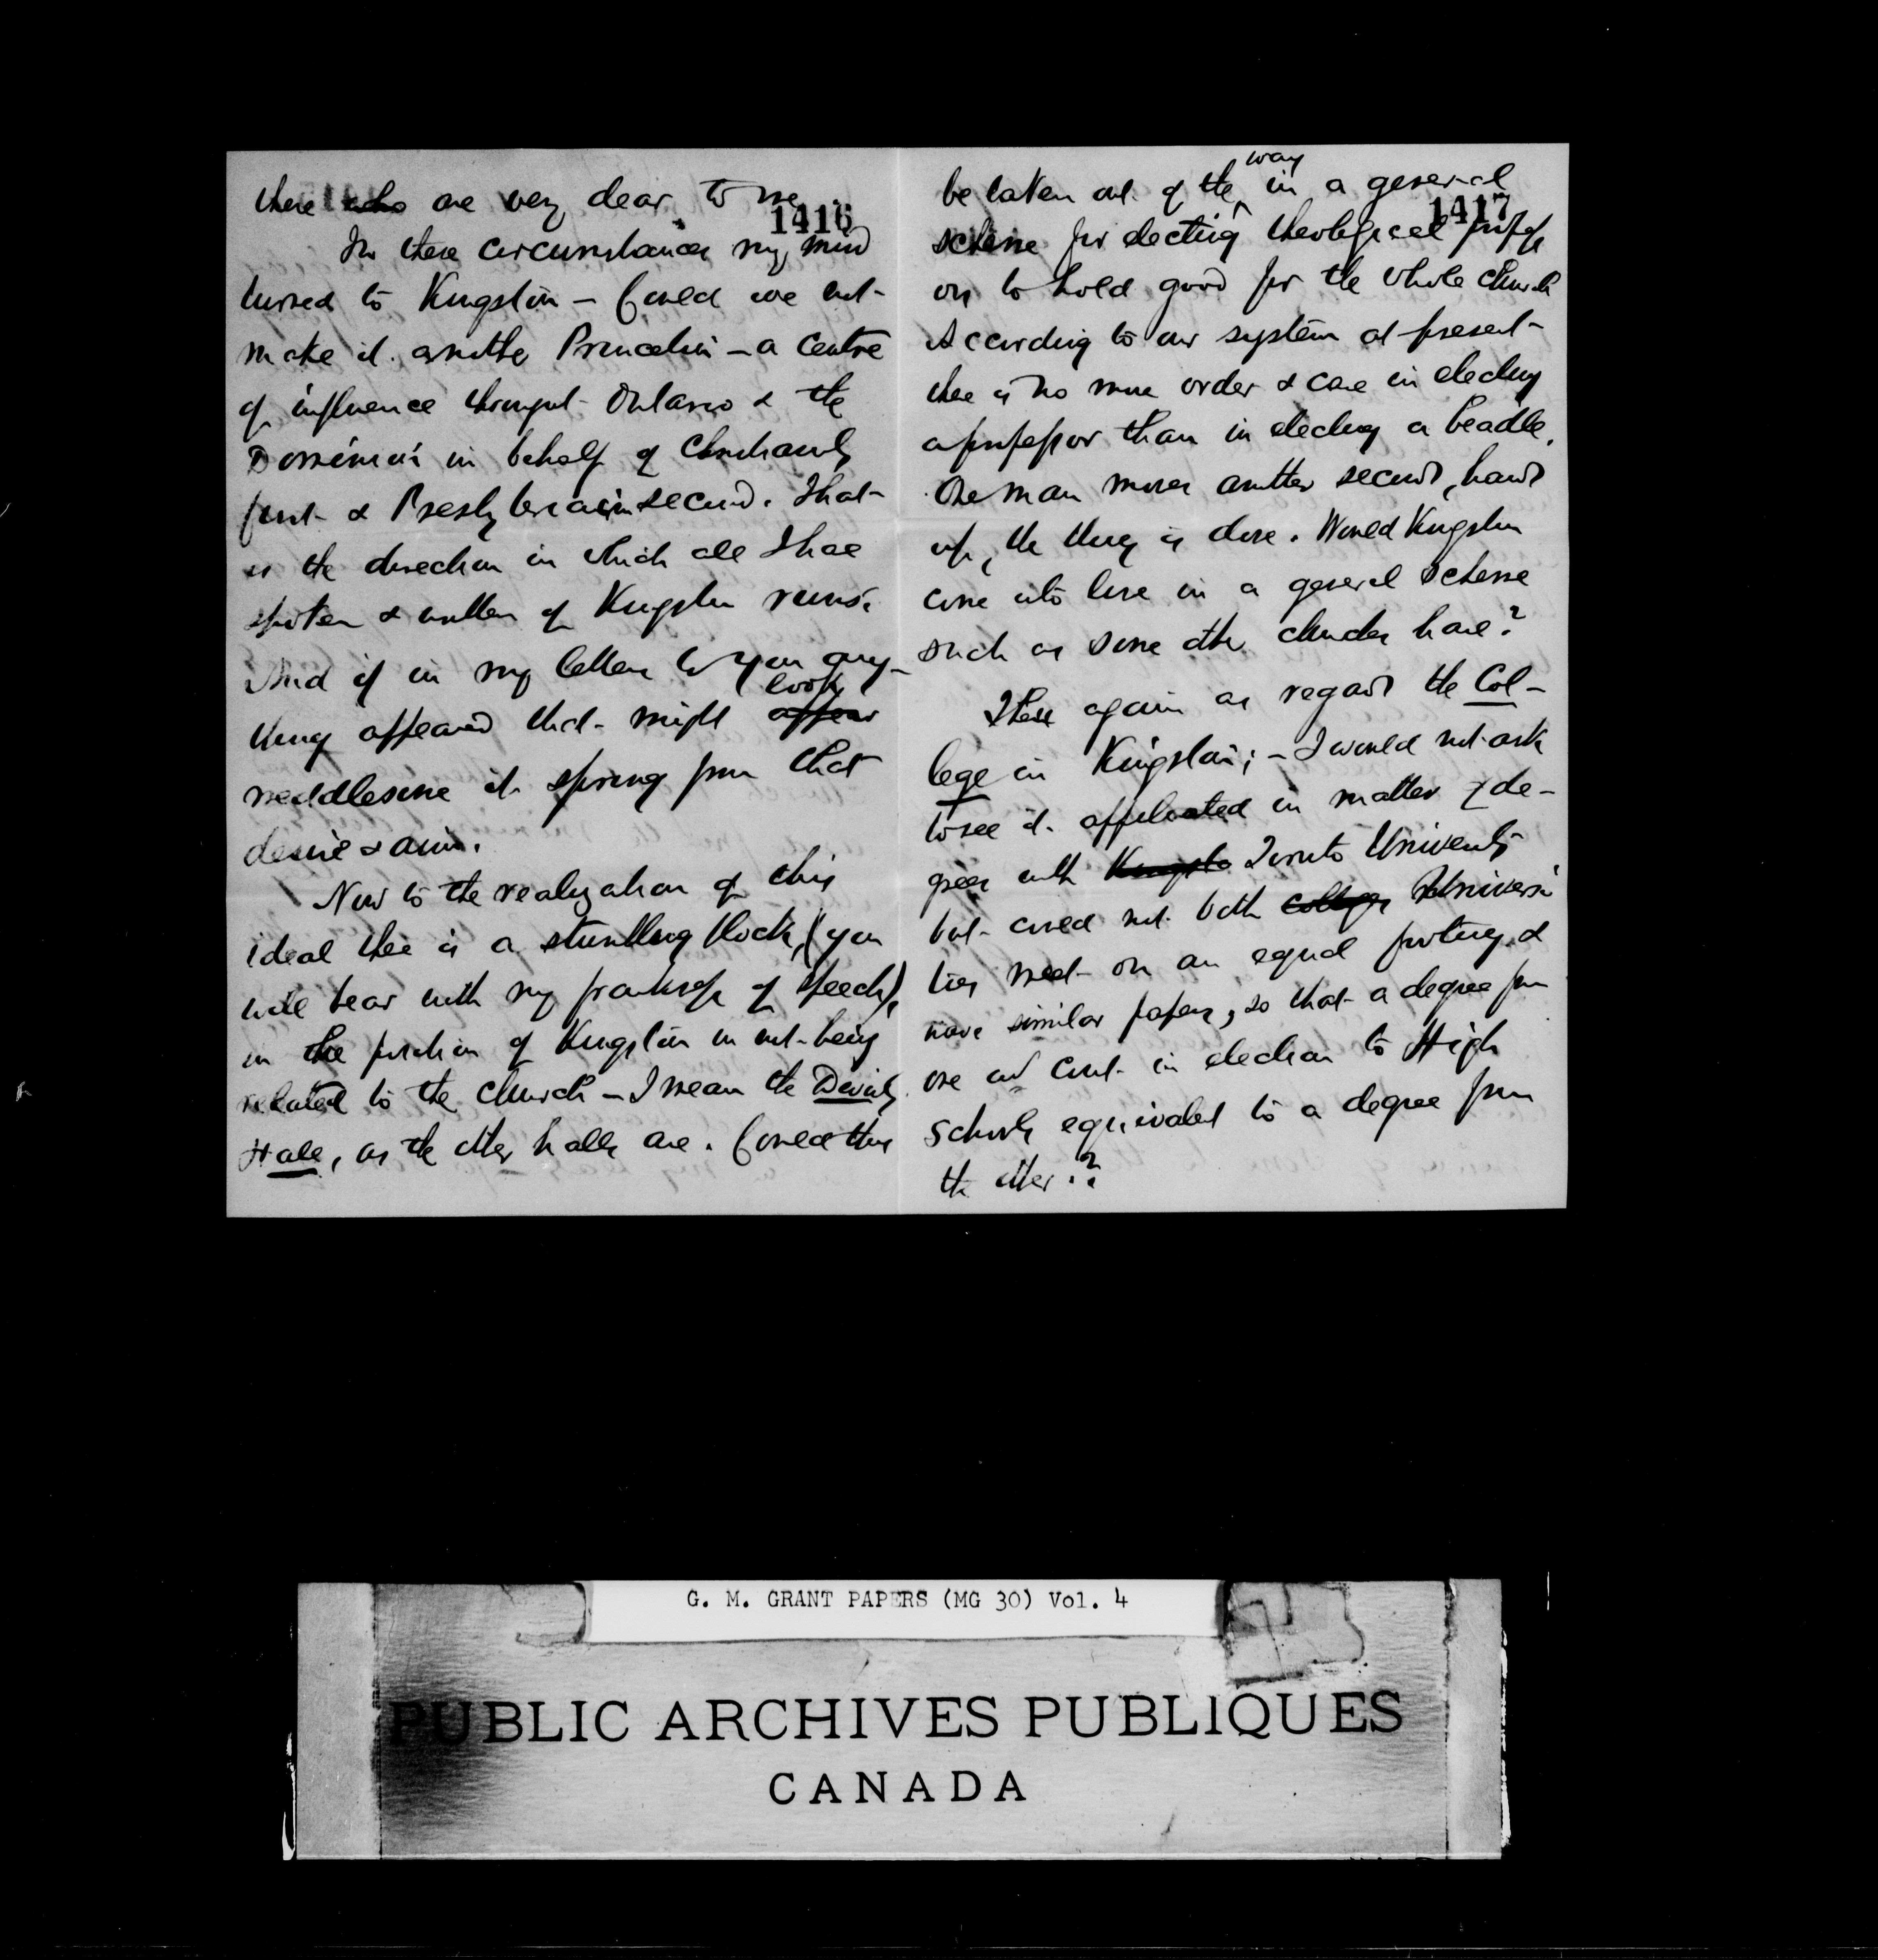 there who are very dear to me
1416
In these circumstances my mind
turned to Kingston - Could we not
make it another Princeton - a centre
of influence throught Ontario & the
Dominion in behalf of Christianity
first & Presbyterianism second. That
is the direction in which all I have
spoken & written of Kingston runs.
And if in my letters to you any-
look
thing appeared that might appear
meddlesome it sprung from that
desire & aim.
Now to the realization of this
ideal there is a stumbling block, (you
will bear with my frankness of speech),
in the position of Kingston in not being
related to the Church - I mean the Divinity
Hall, as the other halls are. Could this
way
be taken out of the in a general
1417
scheme for electing theological profess
ors to hold good for the whole Church
According to our system at present
there is no more order & care in electing
a professor than in electing a beadle.
One man moves another seconds, hands
up, the thing is done. Would Kingston
come into line in a general scheme
such as some other churches have?
Then again as regards the Col-
lege in Kingston; - I would not ask
to see it affiliated in matter of de-
grees with Kingsto Toronto University
but could not both Colleges Universi
ties meet on an equal footing &
have similar papers, so that a degree from
one wd count in election to High
Schools equivalent to a degree from
the other.?
G. M. GRANT PAPERS (MG 30) Vol. 4
PUBLIC ARCHIVES PUBLIQUES
CANADA